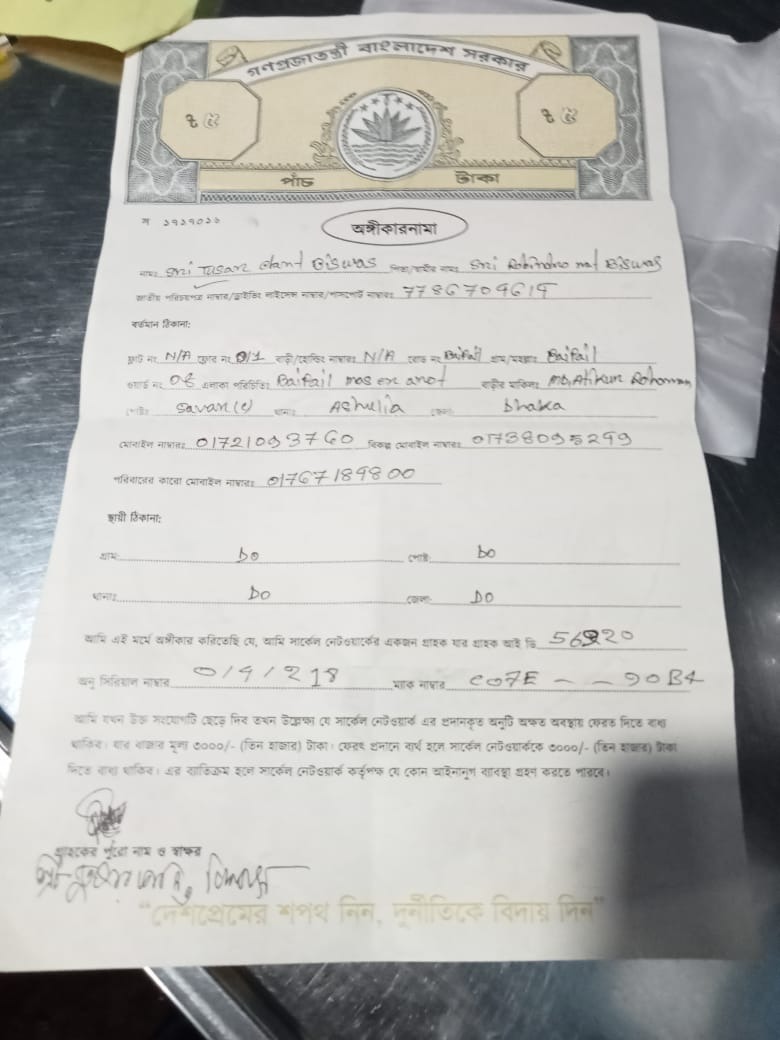 গণপ্রজাতন্ত্রী বাংলাদেশ সরকার
৳ ৫ ৳ ৫
পাঁচ টাকা
অঙ্গীকারনামা
নামঃ Sri Tusar Biswas পিতা/স্বামীর নামঃ Sri Robindro nat Biswas
জাতীয় পরিচয়পত্র নাম্বার/ড্রাইভিং লাইসেন্স নাম্বার/পাসপোর্ট নাম্বারঃ
বর্তমান ঠিকানা:
ফ্লাট নং N/A ফ্লোর নং বাড়ী/হোল্ডিং নাম্বারঃ N/A রোড নং Baipail গ্রাম/মহল্লাঃ Baipail
ওয়ার্ড নং 06 এলাকা পরিচিতিঃ Baipail বাড়ীর মালিকঃ MD, Atikur Rohoman
পোষ্টঃ Savar (c) থানাঃ Ashulia জেলাঃ Dhaka
মোবাইল নাম্বারঃ বিকল্প মোবাইল নাম্বারঃ
পরিবারের কারো মোবাইল নাম্বারঃ 01767189800
স্থায়ী ঠিকানা:
গ্রামঃ DO পোষ্টঃ DO
থানাঃ DO জেলাঃ DO
আমি এই মর্মে অঙ্গীকার করিতেছি যে, আমি সার্কেল নেটওয়ার্কের একজন গ্রাহক যার গ্রাহক আই ডি
অনু সিরিয়াল নাম্বার ম্যাক নাম্বার C07E -- 90B4
আমি যখন উক্ত সংযোগটি ছেড়ে দিব তখন উল্লেক্ষ্য যে সার্কেল নেটওয়ার্ক এর প্রদানকৃত অনুটি অক্ষত অবস্থায় ফেরত দিতে বাধ্য
থাকিব। যার বাজার মূল্য ৩০০০/- (তিন হাজার) টাকা। ফেরৎ প্রদানে ব্যর্থ হলে সার্কেল নেটওয়ার্ককে ৩০০০/- (তিন হাজার) টাকা
দিতে বাধ্য থাকিব। এর ব্যতিক্রম হলে সার্কেল নেটওয়ার্ক কর্তৃপক্ষ যে কোন আইনানুগ ব্যবস্থা গ্রহণ করতে পারবে।
গ্রাহকের পুরো নাম ও স্বাক্ষর
"দেশপ্রেমের শপথ নিন, দুর্নীতিকে বিদায় দিন"